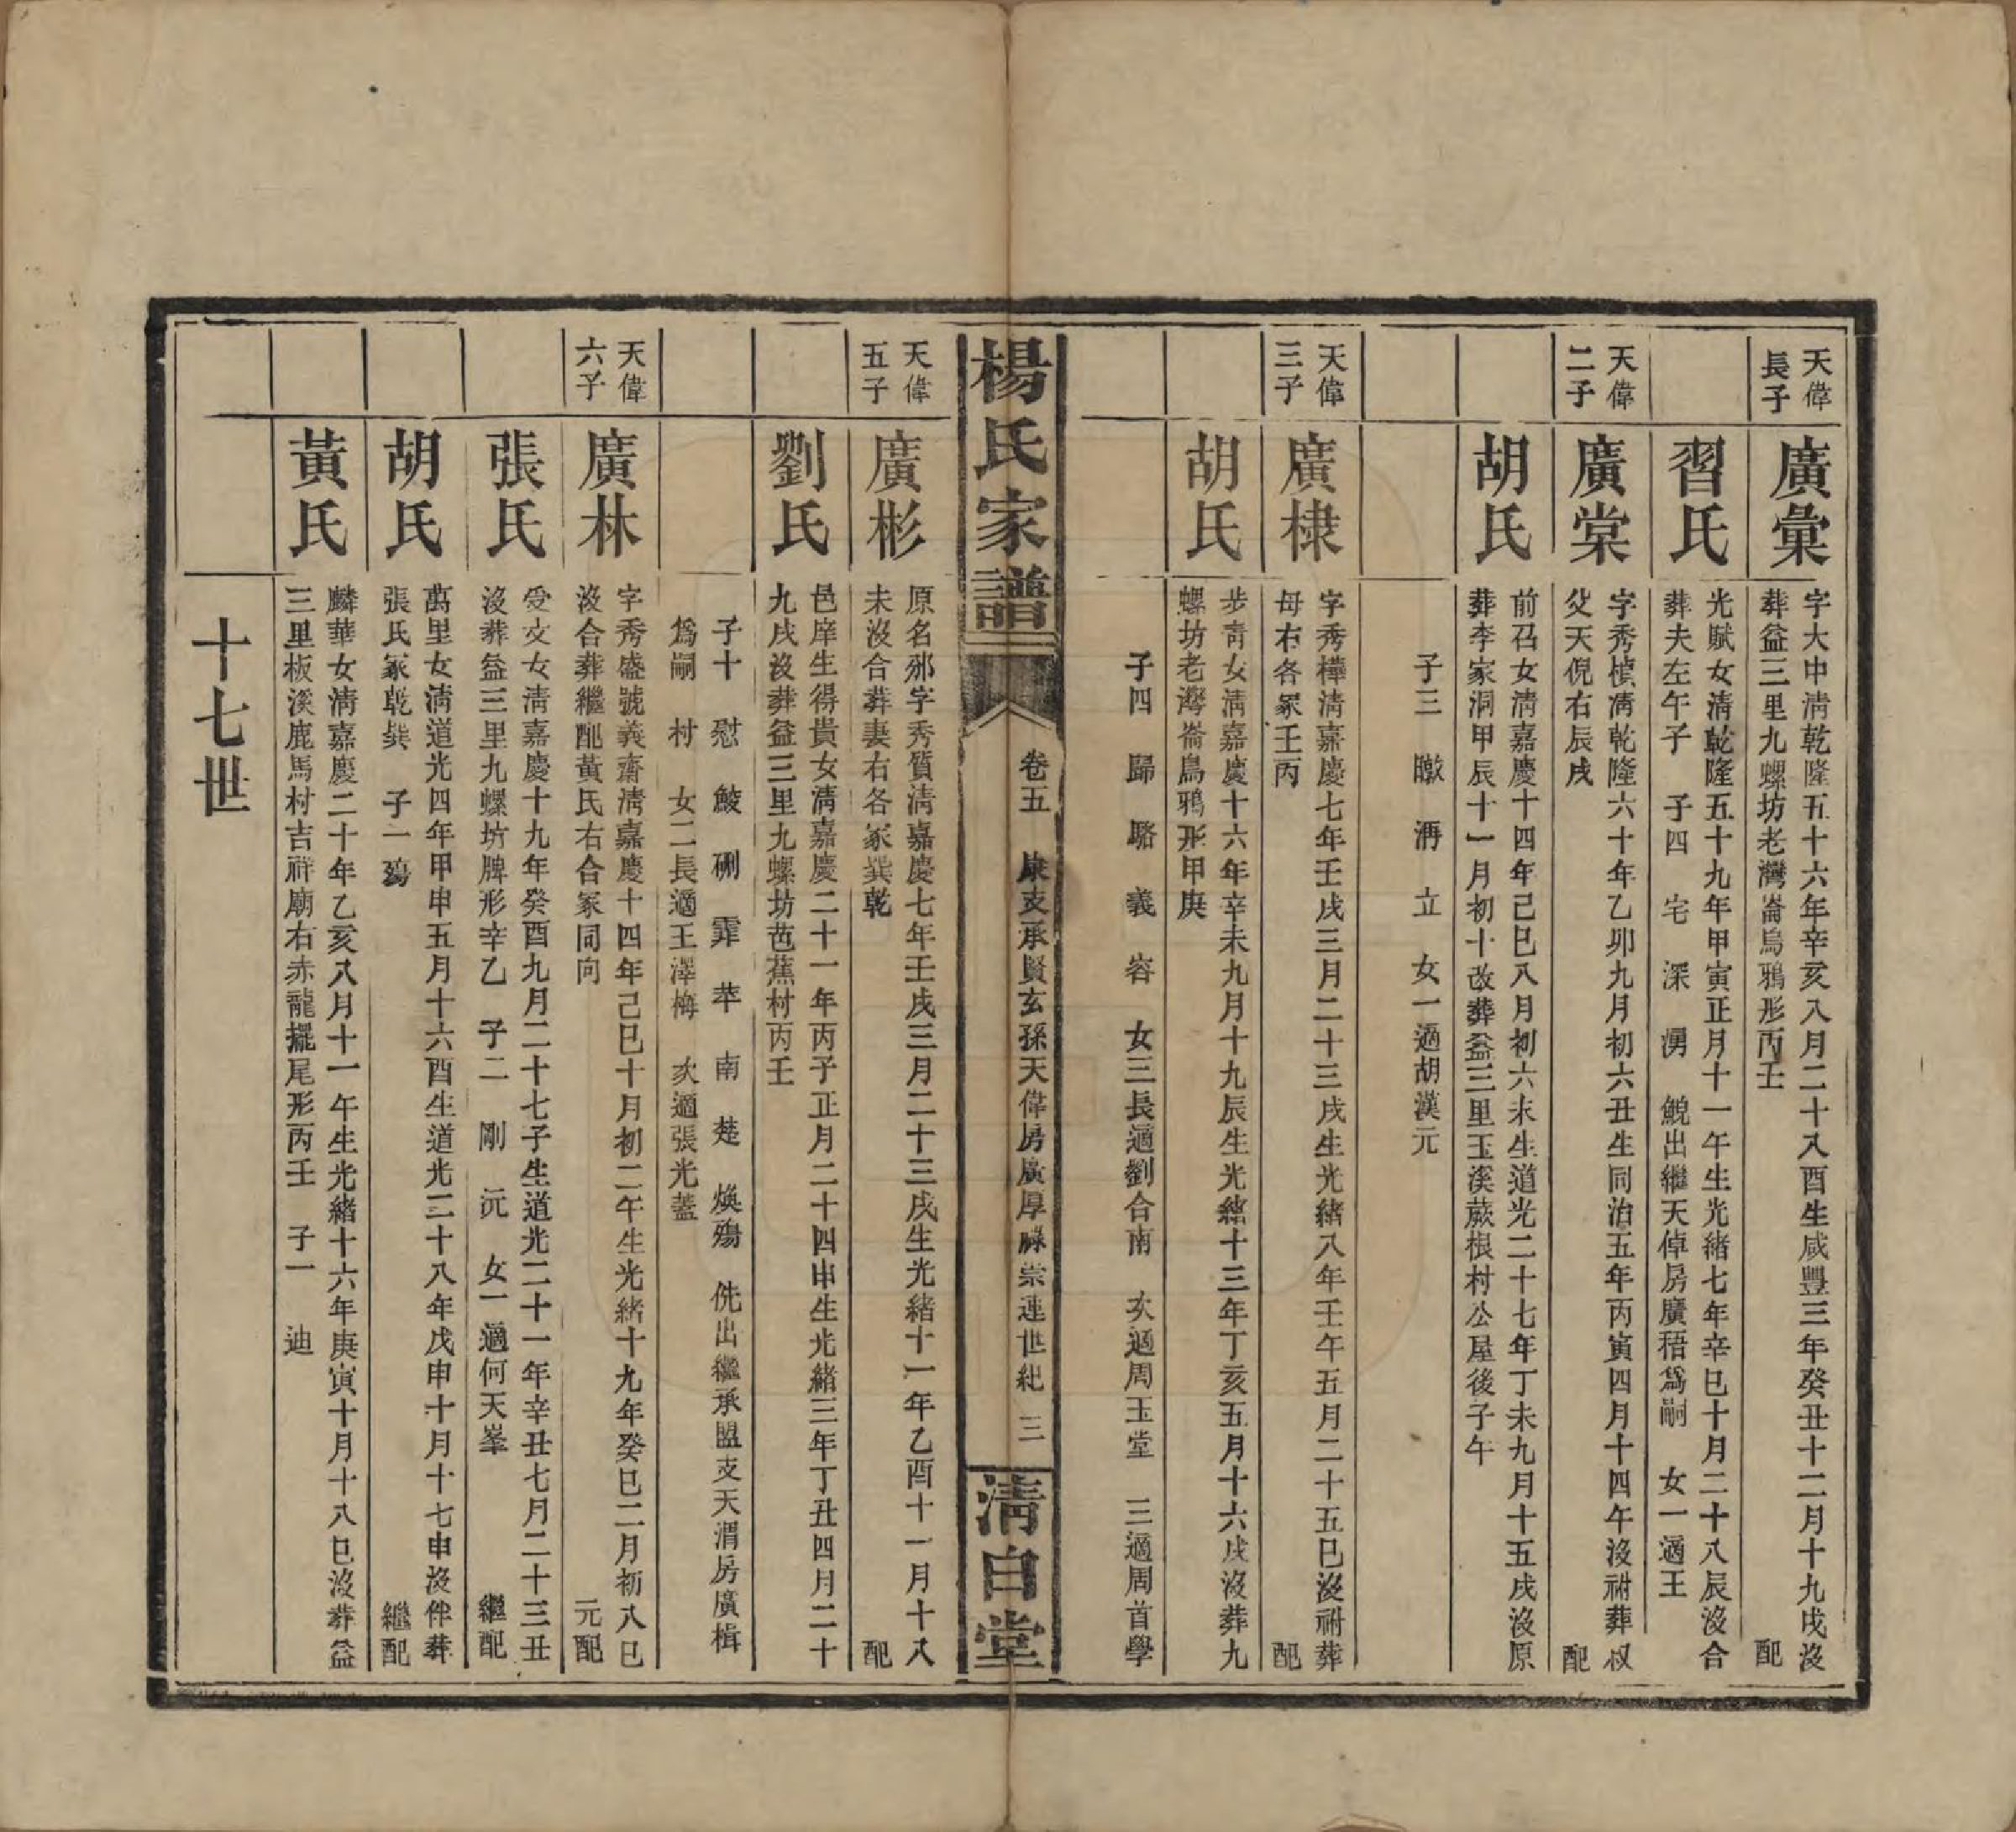 天偉
長子
廣彙
字大中淸乾隆五十六年辛亥八月二十八酉生咸豐三年癸丑十二月十九戌沒
葬益三里九螺坊老灣崙烏鴉形丙壬　配
習氏
光賦女淸乾隆五十九年甲寅正月十一午生光緒七年辛巳十月二十八辰沒合
葬夫左午子　子四　宅　深　湧　鯢出繼天倬房廣梧爲嗣　女一適王
天偉
二子
廣棠
字秀楨淸乾隆六十年乙卯九月初六丑生同治五年丙寅四月十四午沒祔葬叔
父天倪右辰戌　配
胡氏
前召女淸嘉慶十四年己巳八月初六未生道光二十七年丁未九月十五戌沒原
葬李家洞甲辰十一月初十改葬益三里玉溪蕨根村公屋後子午
子三　曒　洅　立　女一適胡漢元
天偉
三子
廣棣
字秀樺淸嘉慶七年壬戌三月二十三戌生光緒八年壬午五月二十五巳沒祔葬
母右各冢壬丙　配
胡氏
步靑女淸嘉慶十六年辛未九月十九辰生光緒十三年丁亥五月十六戌沒葬九
螺坊老灣崙烏鴉形甲庚
子四　歸　駱　義　容　女三長適劉合南　次適周玉堂　三適周首學
楊氏家譜
卷五　康支承賢玄孫天偉房廣厚崇蓮世紀　三
淸白堂
天偉
五子
廣彬
原名邠字秀質淸嘉慶七年壬戌三月二十三戌生光緒十一年乙酉十一月十八
未沒合葬妻右各冢巽乾　配
劉氏
邑庠生得貴女淸嘉慶二十一年丙子正月二十四申生光緒三年丁丑四月二十
九戌沒葬益三里九螺坊芭蕉村丙壬
子十　慰　鮻　硎　霏　苹　南　楚　煥殤　侁出繼承盟支天渭房廣楫
爲嗣　村　女二長適王澤梅　次適張光蓋
天偉
六子
廣林
字秀盛號義齋淸嘉慶十四年己巳十月初二午生光緒十九年癸巳二月初八巳
沒合葬繼配黃氏右合冢同向　元配
張氏
受文女淸嘉慶十九年癸酉九月二十七子生道光二十一年辛丑七月二十三丑
沒葬益三里九螺坊牌形辛乙　子二　剛　沅　女一適何天峯　繼配
胡氏
萬里女淸道光四年甲申五月十六酉生道光二十八年戊申十月十七申沒伴葬
張氏冢乾巽　子一殤　繼配
黃氏
麟華女淸嘉慶二十年乙亥八月十一午生光緒十六年庚寅十月十八巳沒葬益
三里板溪鹿馬村吉祥廟右赤龍擺尾形丙壬　子一　迪
十七世